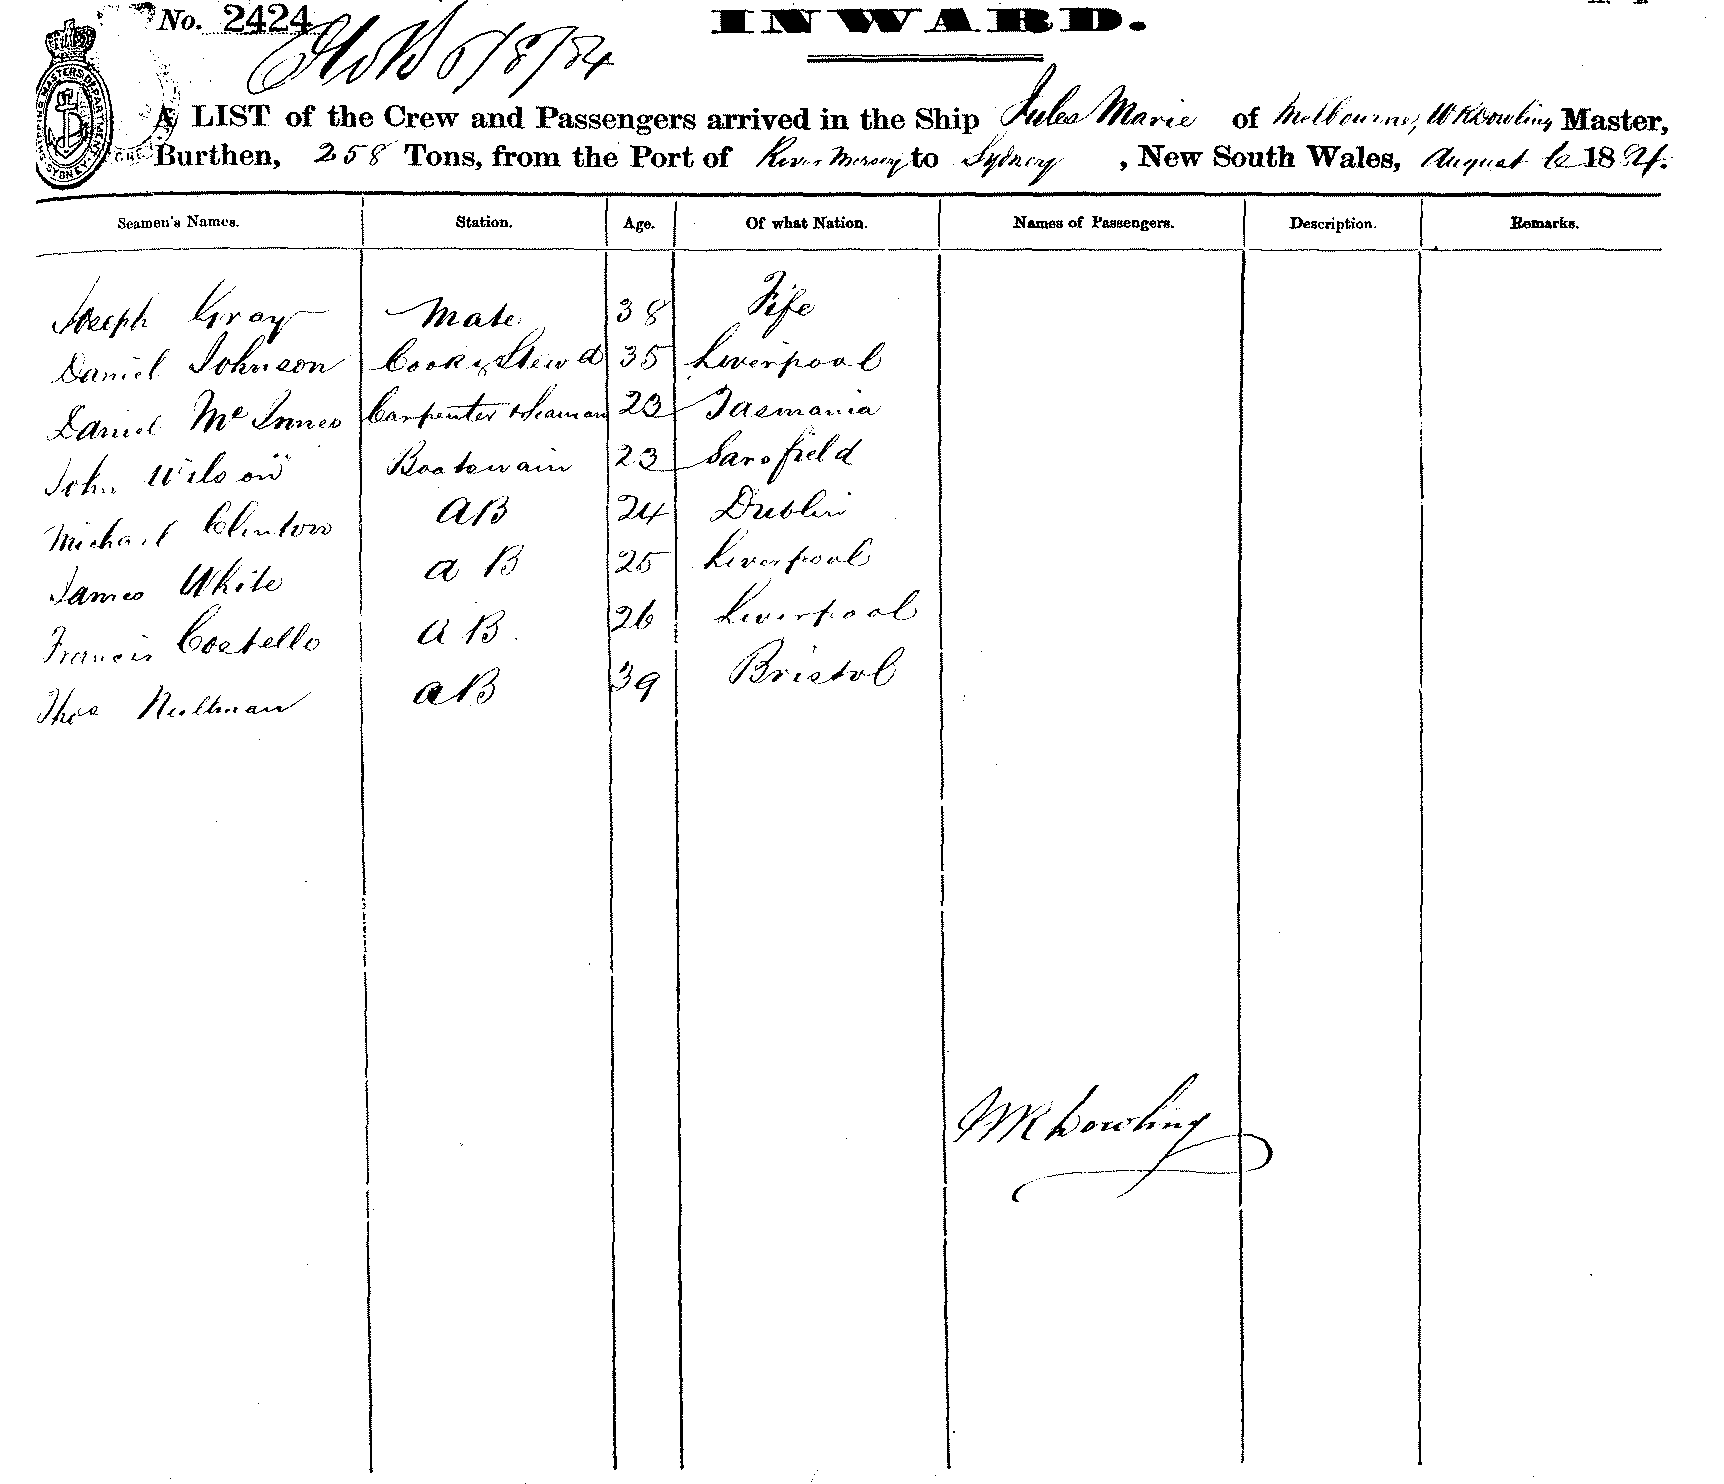 No. 2424
INWARD.
6/8/84
A LIST of the Crew and Passengers arrived in the Ship Jules Marie of Melbourne, W R Dowling Master,
Burthen, 258 Tons, from the Port of River Mersey to Sydney, New South Wales, August 6 1884.
SHIPPING MASTERS DEPARTMENT SYDNEY
Seamen's Names. Station. Age. Of what Nation. Names of Passengers. Description. Remarks.
Joseph Gray Mate 38 Fife
Daniel Johnson Cook & Stewd 35 Liverpool
Daniel McInnes Carpenter & Seaman 23 Tasmania
John Wilson Boatswain 23 Sarsfield
Michael Clinton AB 24 Dublin
James White AB 25 Liverpool
Francis Costello AB 26 Liverpool
Thos AB 39 Bristol
WR Dowling